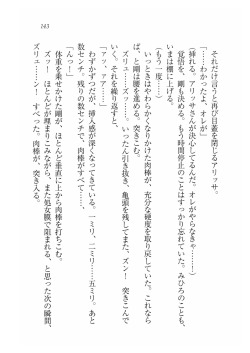 143
それだけ言うと再び目蓋を閉じるアリッサ。
「……わかったよ、オレが」
（挿れる。アリッサさんが決心してるんだ。オレがやらなきゃ……！）
覚悟を、剛も決める。もう時間停止のことはすっかり忘れていた。みひろのことも、
いまは機に上げる。
（もう一度……）
いっときはやわらかくなりかけた肉棒が、充分な硬度を取り戻していた。これなら
と、剛は腰を進める。
ズリュ……ズリュ……ズリュ……！　いったん引き抜き、亀頭を残してまた、ズン！　突きこんで
いく。それを繰り返すと、
「アッ、ァア……」
わずかずつだが、挿入感が深くなってきている。一ミリ、二ミリ……五ミリ。あと
数センチ。残りの数センチで、すべてが。
（んっ！）
体重を乗せかけた剛が、ほとんど垂直に上から肉棒を打ちこむ。
ズッ！　ほとんどが埋まりこみながら、また処女膜で阻まれる、と思った次の瞬間、
ズリュ……ン！　すべった。肉棒が、突き入る。